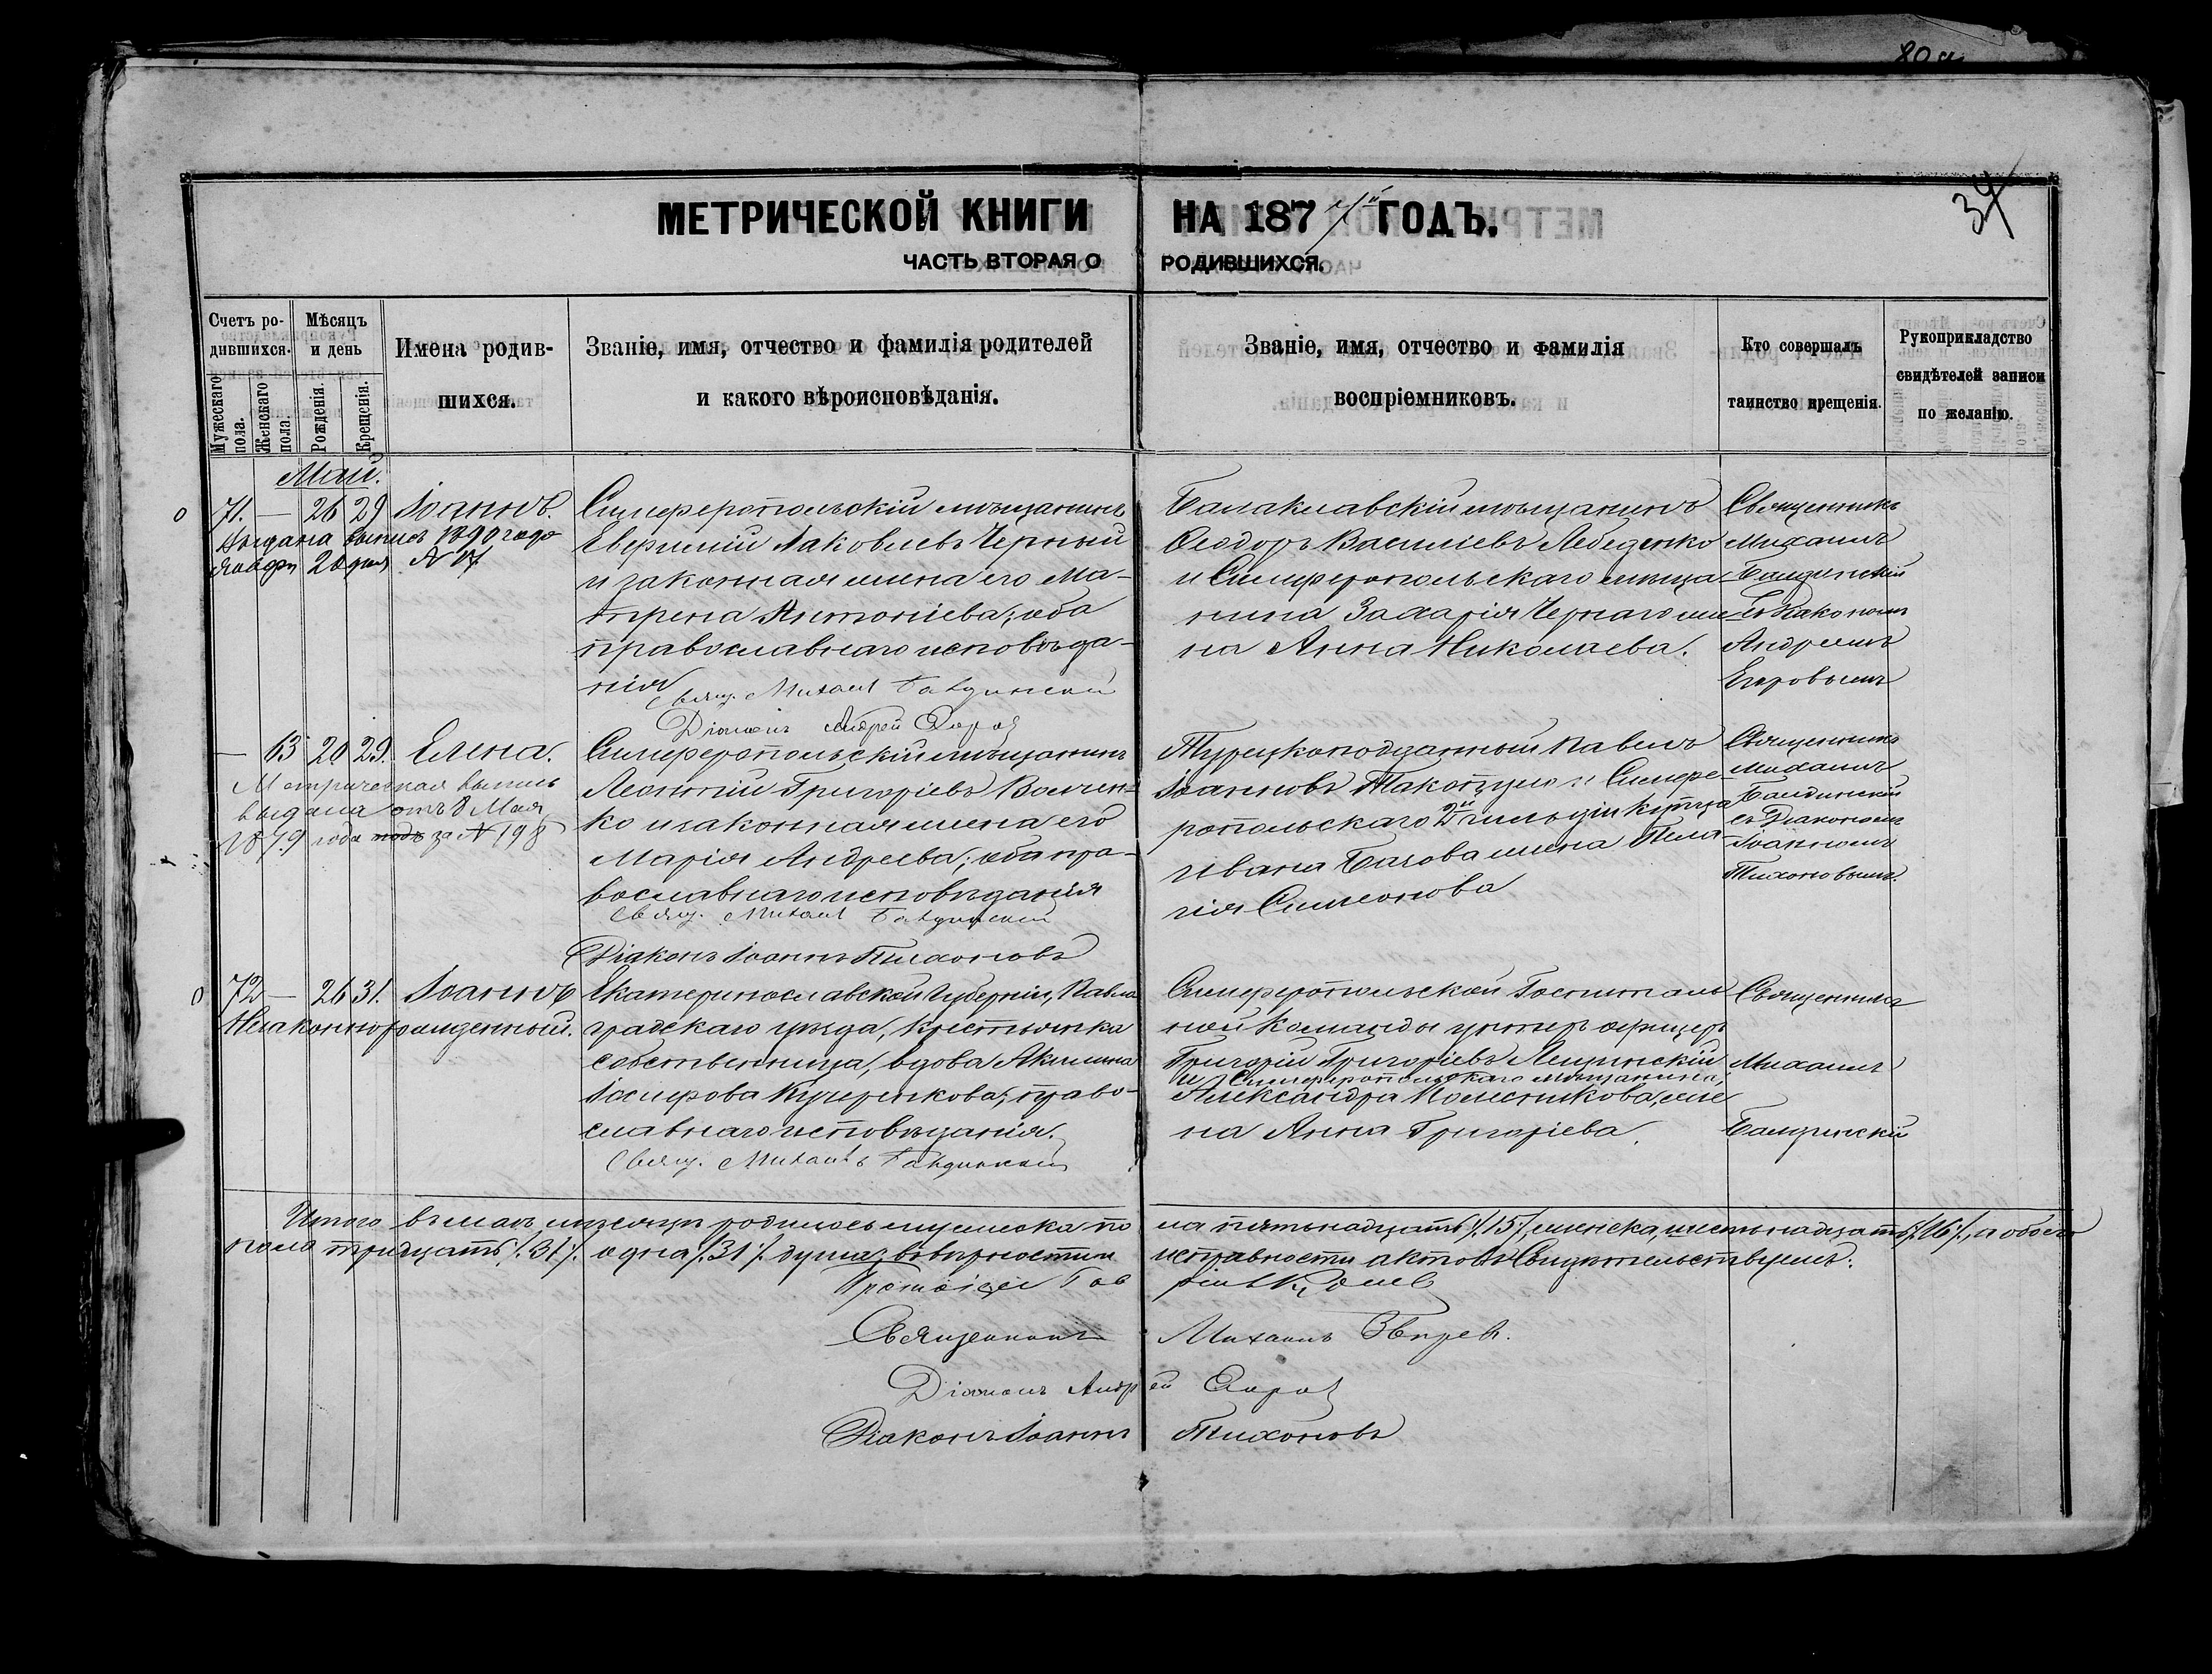 80а
34
МЕТРИЧЕСКОЙ КНИГИ НА 1877й ГОДЪ.
ЧАСТЬ ВТОРАЯ О РОДИВШИХСЯ.
Счетъ родившихся.
Мужескаго пола.
Женскаго пола.
Мѣсяцъ и день
Рожденія.
Крещенія.
Имена родив-
шихся.
Званіе, имя, отчество и фамилія родителей
и какого вѣроисповѣданія.
Званіе, имя, отчество и фамилія
воспріемниковъ.
Кто совершалъ
таинство крещенія.
Рукоприкладство
свидѣтелей записи
по желанію.
Май.
71. — 26 29 Іоаннъ.
Выдана выпись 1890 года
Января 20 дня №
Симферопольскій мѣщанинъ
Яковлевъ Черный
и законная жена его Ма-
трена Антоніева; оба
православнаго исповѣда-
нія
Свящ. Михаил Балдинский
Діаконъ Андрей
Балаклавскій мѣщанинъ
Ѳеодоръ Василіевъ Лебеденко
и Симферопольскаго мѣща-
нина Захарія Чернаго же-
на Анна Николаева.
Священникъ
Михаилъ
Балдинскій
съ Діакономъ
Андреемъ
— 63 20 29. Елена.
Метрическая выпись
выдана отъ 8 Мая
1879 года за № 198
Симферопольскій мѣщанинъ
Леонтій Григоріевъ Волчен-
ко и законная жена его
Марія Андреева; оба пра-
вославнаго исповѣданія
Свящ. Михаил Балдинский
Діаконъ Іоаннъ Тихоновъ
Турецкоподданный Павелъ
Іоанновъ и Симфе-
ропольскаго 2й гильдіи купца
Ивана жена Пела-
гія Симеонова
Священникъ
Михаилъ
Балдинскій
съ Діакономъ
Іоанномъ
Тихоновымъ.
72 — 26 31. Іоаннъ
Незаконнорожденный.
Екатеринославской Губерніи, Павло
градскаго уѣзда, крестьянка
собственница, вдова Акилина
Іосифова Кучеренкова; право-
славнаго исповѣданія.
Свящ. Михаилъ Балдинский
Симферопольской Госпиталь
ной команды унтеръ офицеръ
Григорій Григоріевъ
и Симферопольскаго мѣщанина,
Александра Колесникова, же
на Анна Григоріева.
Священникъ
Михаилъ
Балдинскій
Итого въ маѣ мѣсяцѣ родилось мужеска по
ла пятьнадцать /.15/., женска, шестьнадцать /.16/., а обоего
пола тридцать одна /.31/. душа; въ вѣрности и
исправности актовъ Свидѣтельствуемъ:
Протоіерей
Священникъ Михаилъ Звѣревъ.
Діаконъ Андрей
Діаконъ Іоаннъ Тихоновъ